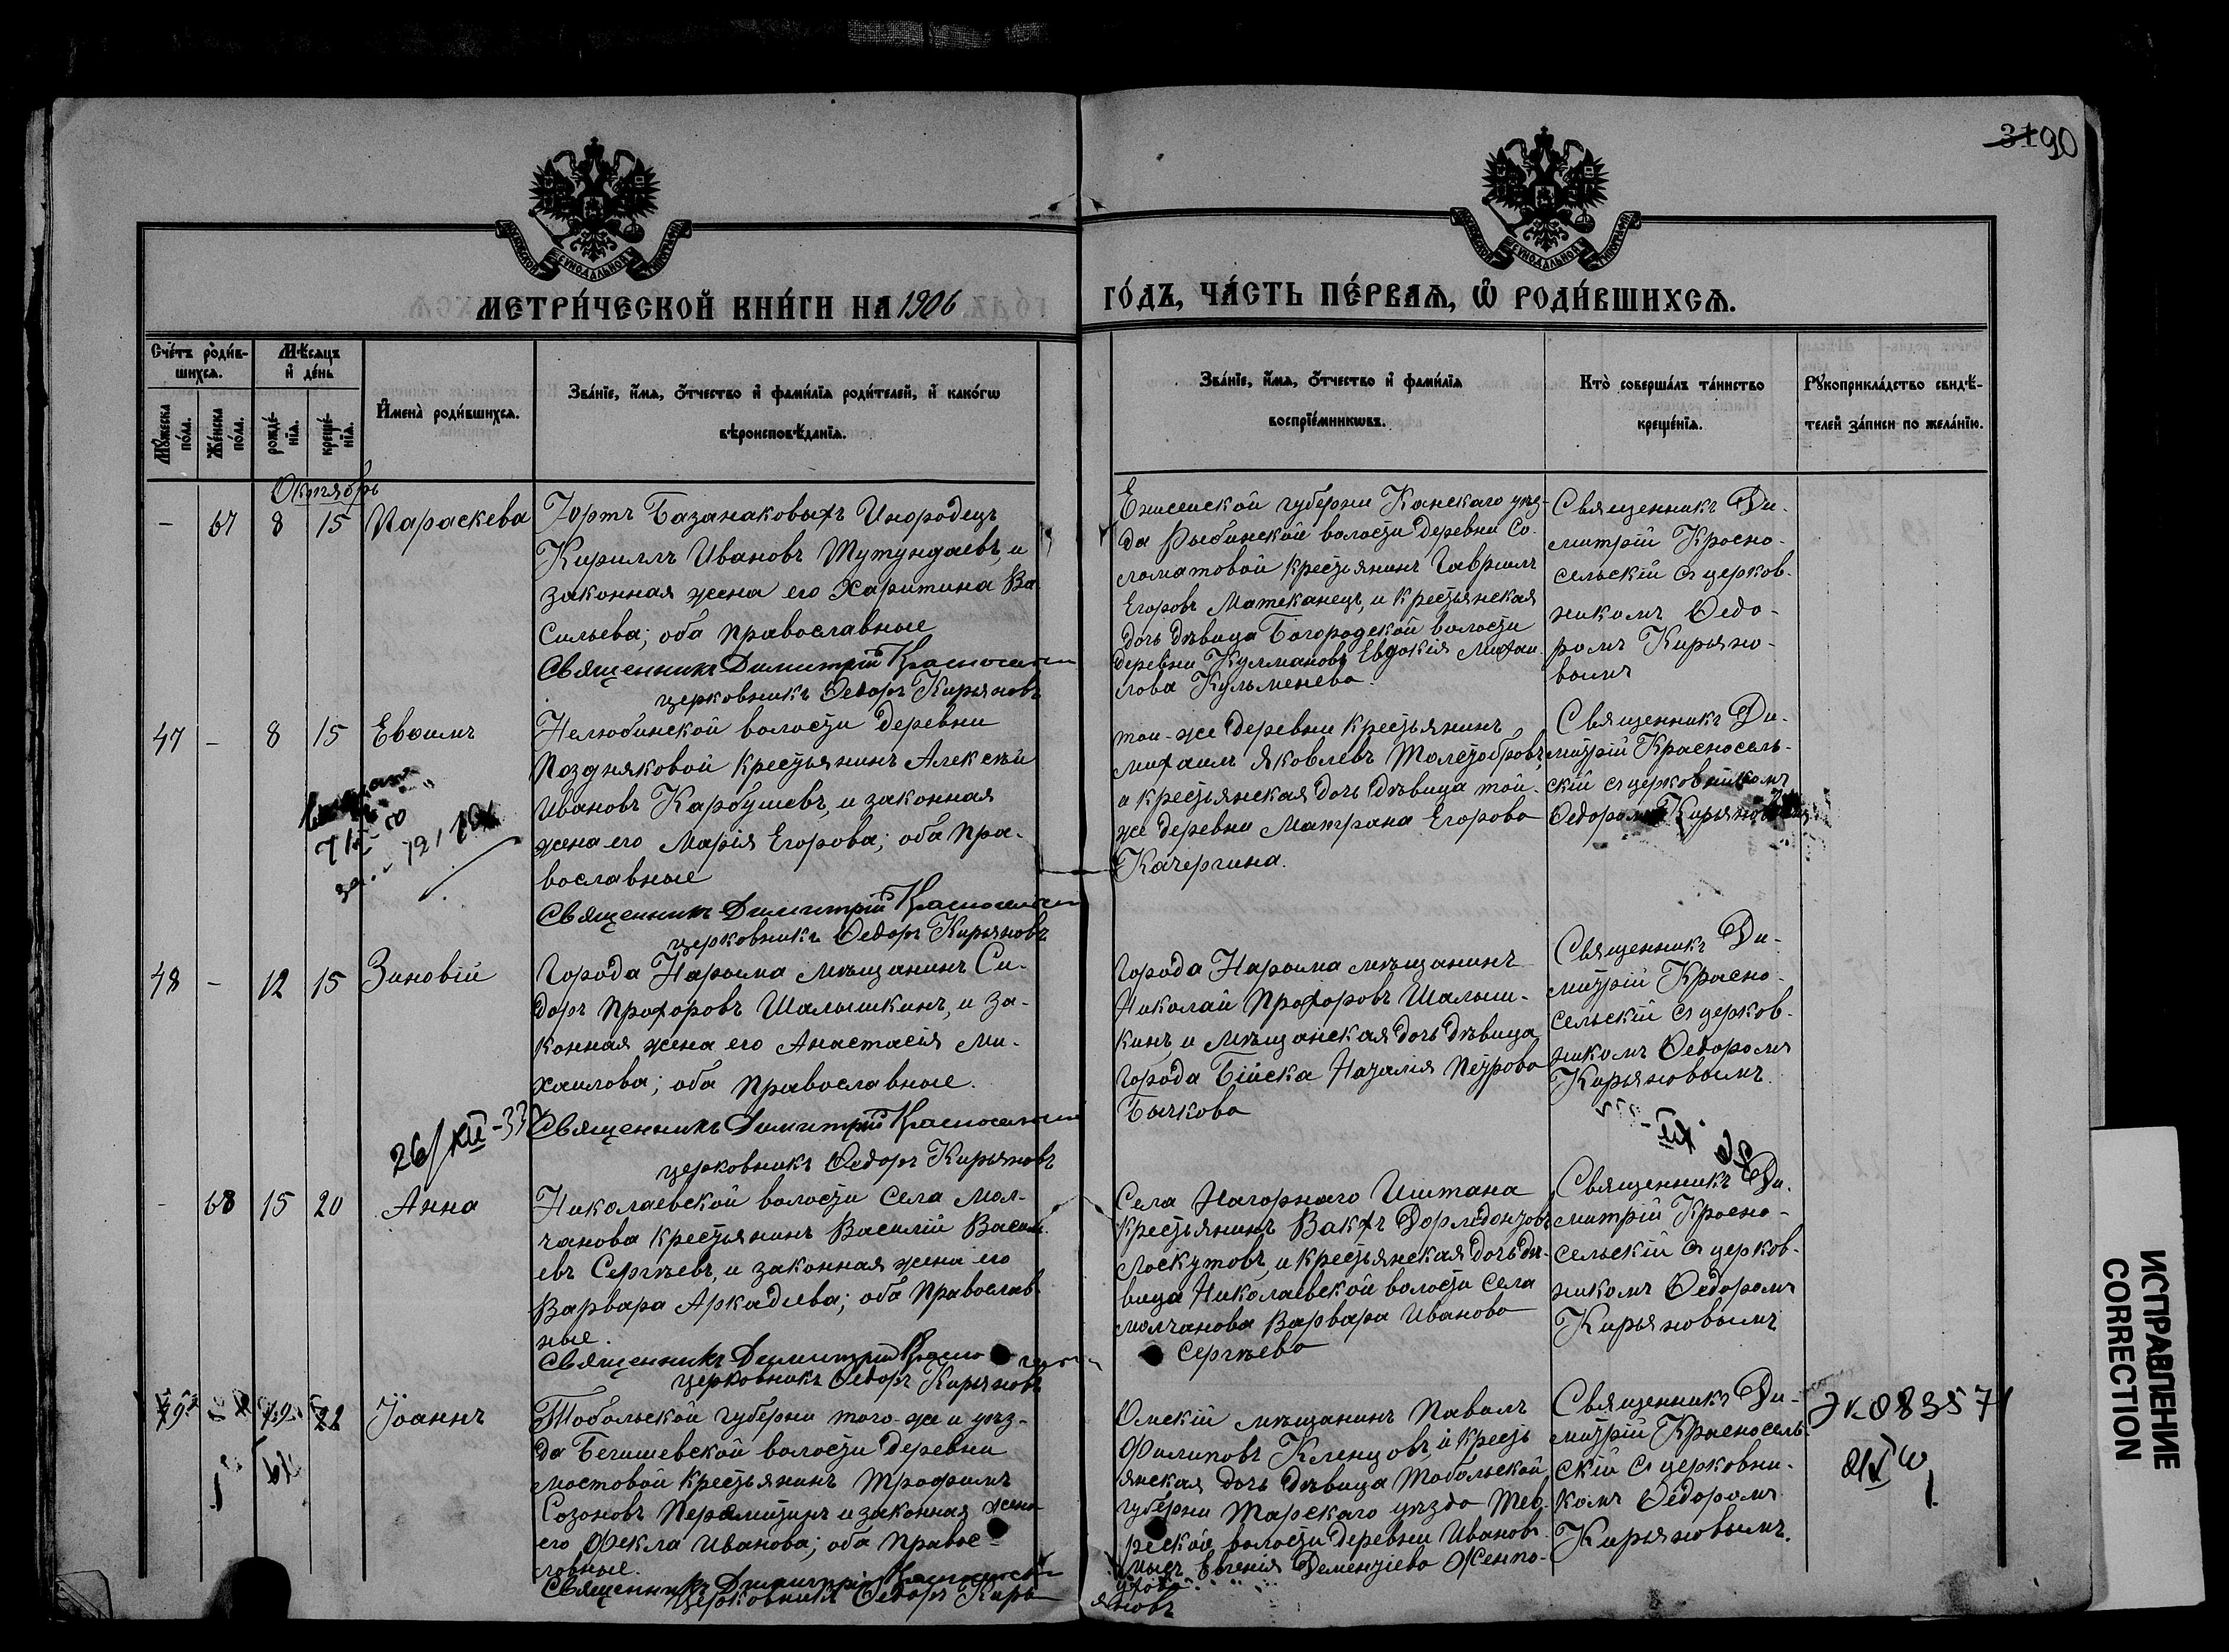 3190
МЕТРИ́ЧЕСКОЙ КНИ́ГИ НА 1906
ГО́ДЪ, ЧА́СТЬ ПЕ́РВАѦ, Ѿ РОДИ́ВШИХСѦ.
Счетъ роди́в-
шихсѧ.
Мѣсѧцъ
и де́нь
Мꙋжеска
пола.
Же́нска
пола.
рожде́-
нїѧ.
креще́-
нїѧ.
Имена̀ роди́вшихсѧ.
Зва́нїе, и́мѧ, ѻ́тчество и фами́лїѧ роди́телей, и како́гѡ
вѣроисповѣ́данїѧ.
Зва́нїе, и́мѧ, ѻ́тчество и фами́лїѧ
воспрїе́мникѡвъ.
Кто̀ соверша́лъ та́инство
креще́нїѧ.
Рꙋкоприкла́дство свидѣ́-
телей за́писи по жела́нїю.
Октябрь
- 67 8 15 Параскева
Юртъ Базанаковыхъ Инородецъ
Кириллъ Ивановъ Тутундаевъ, и
законная жена его Харитина Ва
сильева; оба православные
Священникъ Димитрій Красносельскій
церковникъ Ѳедоръ Кирьяновъ
Енисейской губерни Канскаго уѣз-
да Рыбинской волости деревни Со-
ломатовой крестьянинъ Гавриилъ
Егоровъ Матеканецъ, и крестьянская
дочь дѣвица Богородской волости
деревни Кулманово Евдокія Михаи-
лова Кульменева.
Священникъ Ди-
митрій Красно-
сельскій съ церков-
никомъ Ѳедо-
ромъ Кирьяно-
вымъ
47 - 8 15 Евѳимъ
Нелюбинской волости деревни
Поздняковой крестьянинъ Алексѣй
Ивановъ Карбушевъ, и законная
жена его Марія Егорова; оба пра-
вославные
Священникъ Димитрій Красносельскій
церковникъ Ѳедоръ Кирьяновъ
той-же деревни крестьянинъ
Михаилъ Яковлевъ Толстобровъ,
и крестьянская дочь дѣвица той-
же деревни Матрана Егорова
Качергина.
Священникъ Ди-
митрій Красносель-
скій съ церковникомъ
Ѳедоромъ Кирьяновымъ
48 - 12 15 Зиновій
Города Нарыма мѣщанинъ Си-
доръ Прохоровъ Шалышкинъ, и за-
конная жена его Анастасія Ми-
хаилова; оба православные.
Священникъ Димитрій Красносельскій
церковникъ Ѳедоръ Кирьяновъ
Города Нарыма мѣщанинъ
Николай Прохоровъ Шалыш-
кинъ, и мѣщанская дочь дѣвица
города Бійска Наталія Петрова
Бычкова
Священникъ Ди-
митрій Красно-
сельскій съ церков-
никомъ Ѳедоромъ
Кирьяновымъ.
26/XII-33
- 68 15 20 Анна
Николаевской волости села Мол-
чанова крестьянинъ Василій Василь-
евъ Сергѣевъ, и законная жена его
Варвара Аркадиева; оба православ-
ные.
Священникъ Димитрій Красно
церковникъ Ѳедоръ Кирьяновъ
Села Нагорнаго Иштана
крестьянинъ Вакхъ Дормидонтовъ
Лоскутовъ, и крестьянская дочь дѣ-
вица Николаевской волости села
Молчанова Варвара Иванова
Сергѣева
Священникъ Ди-
митрій Красно-
сельскій съ церков-
никомъ Ѳедоромъ
Кирьяновымъ
Іоаннъ
Тобольской губерни того-же и уѣз-
да Бегишевской волости деревни
Мостовой крестьянинъ Трофимъ
Созоновъ Перемитинъ и законная жена
его Фекла Иванова; оба правос-
лавные.
Священникъ Димитрій Красносельскій
церковникъ Ѳедоръ Кирь
яновъ
Омскій мѣщанинъ Павелъ
Филиповъ Кленцовъ, и кресть
янская дочь дѣвица Тобольской
губерни Тарскаго уѣзда Тев-
реской волости деревни Иванов-
Евгенія Дементіева
Священникъ Ди-
митрій Красносель-
скій съ церковни-
комъ Ѳедоромъ
Кирьяновымъ.
083571
ИСПРАВЛЕНИЕ
CORRECTION